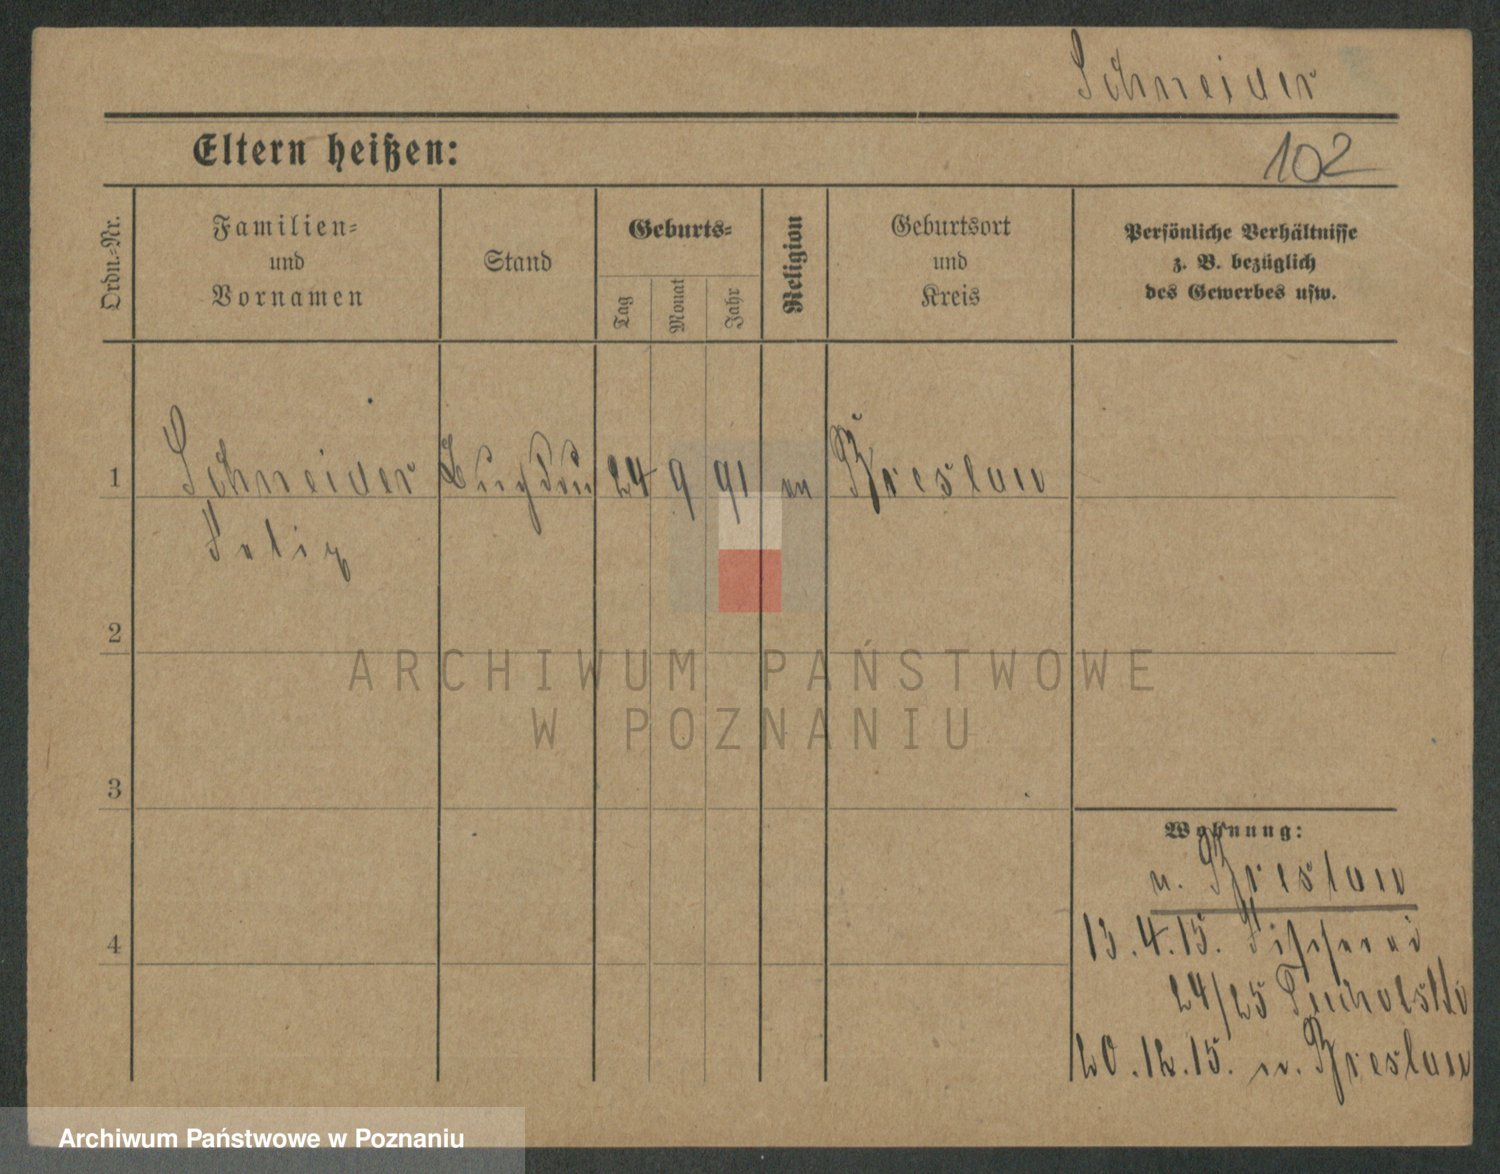 Schneider
Eltern heißen:
102
Ordn.-Nr.
Familien-
und
Vornamen
Stand
Geburts-
Tag
Monat
Jahr
Religion
Geburtsort
und
Kreis
Persönliche Verhältnisse
z. B. bezüglich
des Gewerbes usw.
1
Schneider 24 9 91 Breslau
Felix
2
ARCHIWUM PAŃSTWOWE
W POZNANIU
3
Wohnung:
n. Breslau
4
13.4.15. Fischerei
24/25 Tucholski
20.12.15. n. Breslau
Archiwum Państwowe w Poznaniu